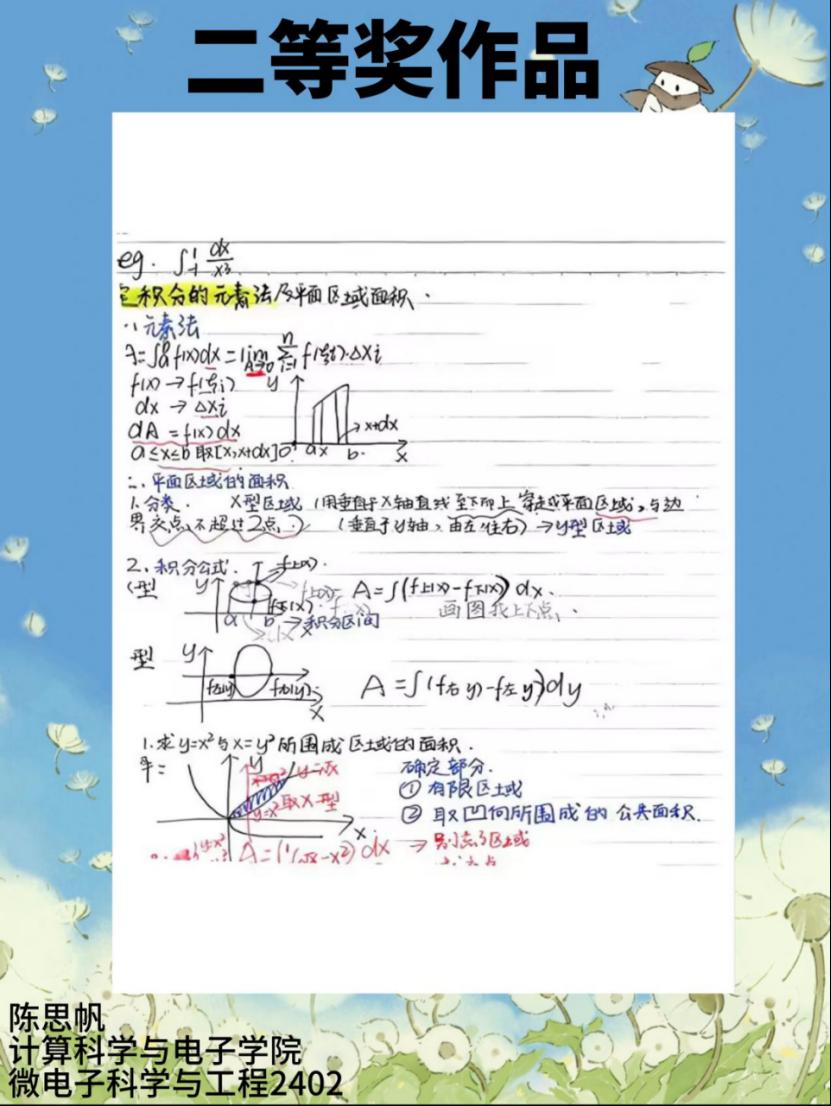 二等奖作品
eg. ∫₋₁¹ dx/x³
定积分的元素法及平面区域面积.
元素法
A=∫ₐᵇf(x)dx = lim Σⁿᵢ₌₁ f(ξᵢ)·Δxᵢ
f(x) → f(ξᵢ)
dx → Δxᵢ
dA = f(x)dx
a≤x≤b 取[x,x+dx]
y
x+dx
0 a x b x
二、平面区域的面积
1.分类. X型区域 (用垂直于X轴直线 至下而上 穿过平面区域,与边
界交点不超过2点.) (垂直于y轴,由左往右) → y型区域
2.积分公式. f上(x).
型 y f下(x) A=∫(f上(x)-f下(x)) dx.
a b → 积分区间 画图找上下点.
x
型 y f左(y) f右(y) A=∫(f右y)-f左y)dy
x
1.求y=x²与x=y²所围成区域的面积.
y y=√x 确定部分.
① 有限区域
y=x² 取X型 ② 取几何所围成的公共面积.
x
A=∫¹(√x-x²) dx → 区域
陈思帆
计算科学与电子学院
微电子科学与工程2402